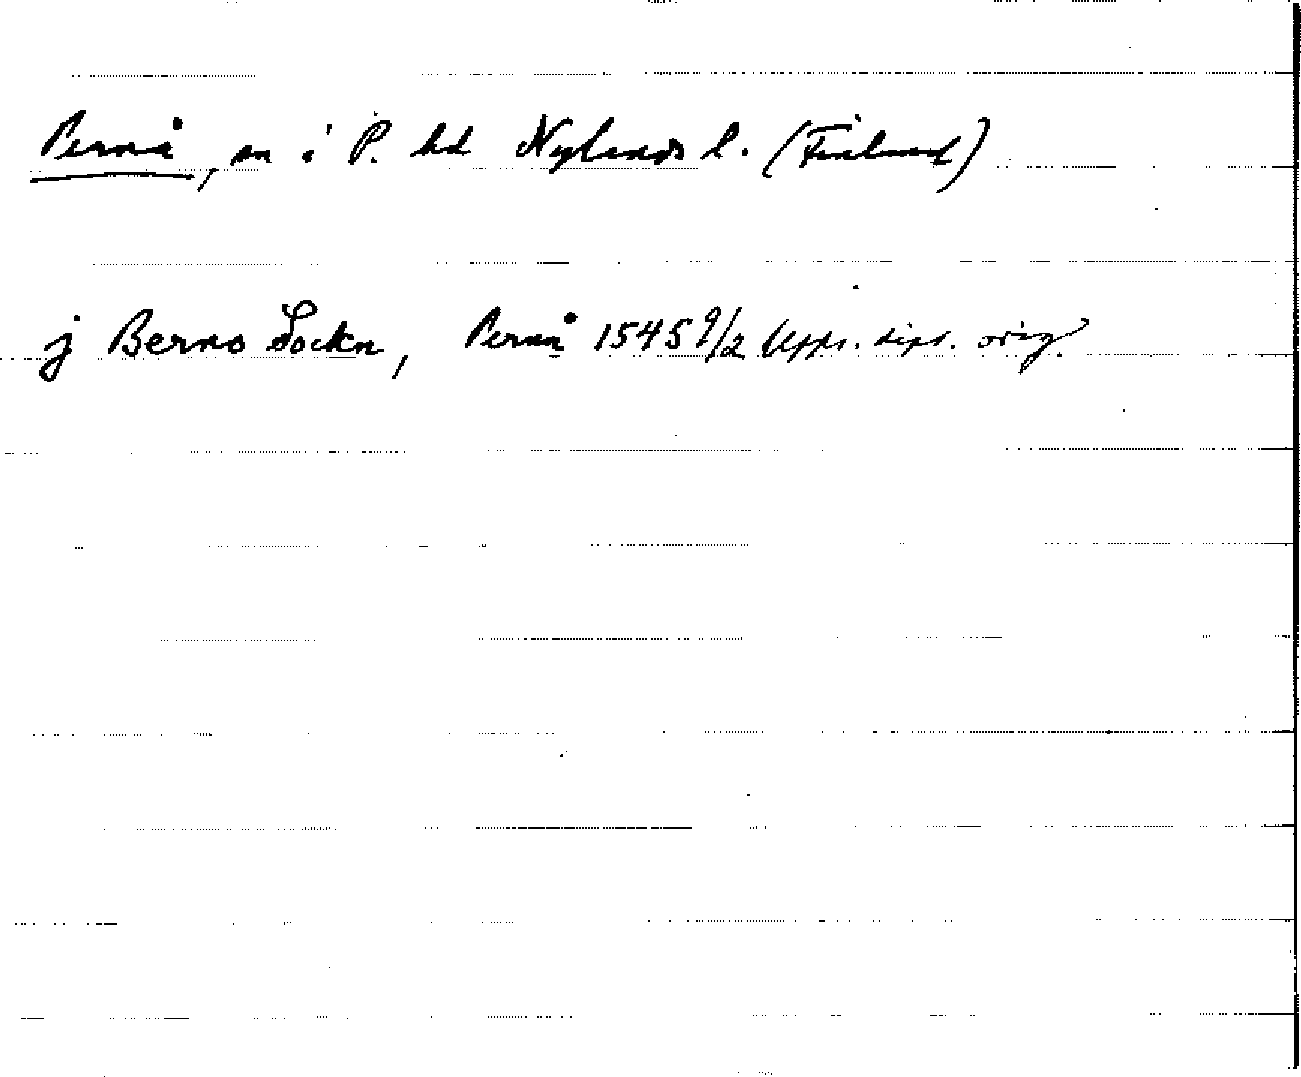 Pernå, sn i P. hd Nylands l. (Finland)
j Berno Sockn, Pernå 1545 9/2 Upps. dipl. orig.